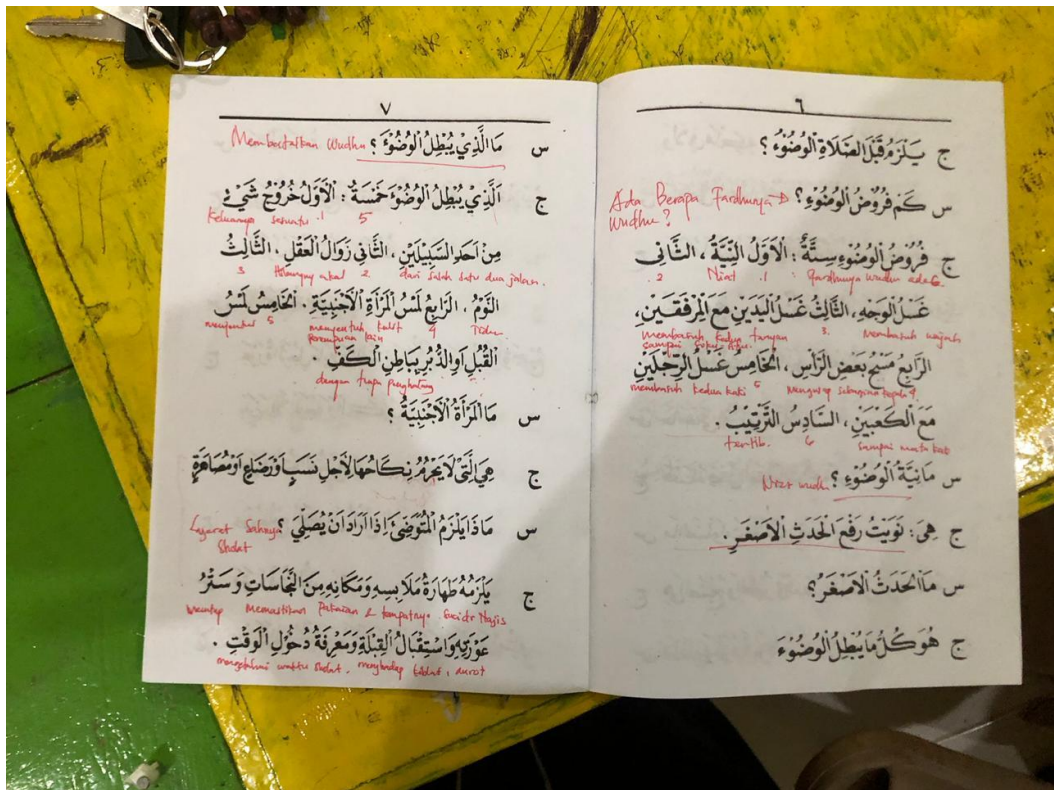 ٦
ج يَلْزَمُ قَبْلَ الصَّلَاةِ الْوُضُوْءُ ؟
س كَمْ فُرُوْضُ الْوُضُوْءِ ؟ Ada Berapa Fardhunya
wudhu ?
ج فُرُوْضُ الْوُضُوْءِ سِتَّةٌ : اَلْأَوَّلُ النِّيَّةُ ، الثَّانِى
2 Niat 1. : fardhunya wudhu ada 6
غَسْلُ الْوَجْهِ ، الثَّالِثُ غَسْلُ الْيَدَيْنِ مَعَ الْمِرْفَقَيْنِ ،
membasuh kedua tangan 3. Membasuh wajah
sampai
الرَّابِعُ مَسْحُ بَعْضِ الرَّأْسِ ، الْخَامِسُ غَسْلُ الرِّجْلَيْنِ
membasuh kedua kaki 5 Mengusap sebagian kepala 4.
مَعَ الْكَعْبَيْنِ ، السَّادِسُ التَّرْتِيْبُ .
tartib. 6 sampai mata kaki
س مَا نِيَّةُ الْوُضُوْءِ ؟ Niat wudhu
ج هِيَ : نَوَيْتُ رَفْعَ الْحَدَثِ الْأَصْغَرِ .
س مَا الْحَدَثُ الْأَصْغَرُ ؟
ج هُوَ كُلُّ مَا يُبْطِلُ الْوُضُوْءَ
٧
س مَا الَّذِيْ يُبْطِلُ الْوُضُوْءَ ؟ Membatalkan Wudhu
ج اَلَّذِيْ يُبْطِلُ الْوُضُوْءَ خَمْسَةٌ : اَلْأَوَّلُ خُرُوْجُ شَيْءٍ
Keluarnya sesuatu .1 5
مِنْ اَحَدِ السَّبِيْلَيْنِ ، الثَّانِى زَوَالُ الْعَقْلِ . الثَّالِثُ
3 Hilangnya akal 2 dari salah satu dua jalan.
النَّوْمُ . الرَّابِعُ لَمْسُ الْمَرْأَةِ الْأَجْنَبِيَّةِ . الْخَامِسُ لَمْسُ
menyentuh 5 menyentuh kulit 4 Tidur
perempuan lain
الْقُبُلِ اَوِ الدُّبُرِ بِبَاطِنِ الْكَفِّ .
dengan tanpa penghalang
س مَا الْمَرْأَةُ الْأَجْنَبِيَّةُ ؟
ج هِيَ الَّتِيْ لَا يَحْرُمُ نِكَاحُهَا لِأَجْلِ نَسَبٍ اَوْ رَضَاعٍ اَوْ مُصَاهَرَةٍ
س مَاذَا يَلْزَمُ الْمُتَوَضِّئَ اِذَا اَرَادَ اَنْ يُصَلِّيَ ؟ Sahnya
Sholat
ج يَلْزَمُهُ طَهَارَةُ مَلَابِسِهِ وَمَكَانِهِ مِنَ النَّجَاسَاتِ وَسَتْرُ
Memastikan Pakaian & tempatnya. Suci dr Najis
عَوْرَتِهِ وَاسْتِقْبَالُ الْقِبْلَةِ وَمَعْرِفَةُ دُخُوْلِ الْوَقْتِ .
mengetahui waktu sholat . menghadap kiblat , aurot